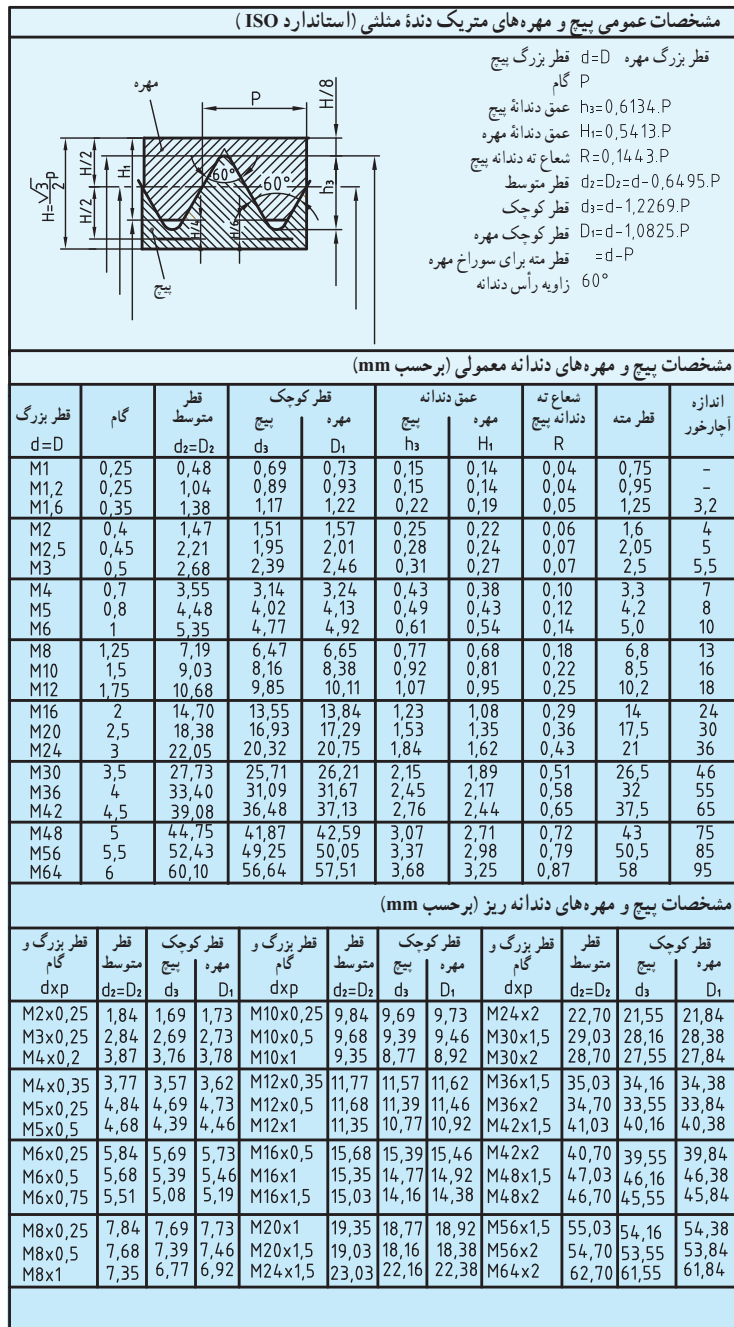 مشخصات عمومی پیچ و مهره‌های متریک دندهٔ مثلثی (استاندارد ISO )
قطر بزرگ مهره d=D قطر بزرگ پیچ
P گام
h₃=0,6134.P عمق دندانهٔ پیچ
H₁=0,5413.P عمق دندانهٔ مهره
R=0,1443.P شعاع ته دندانه پیچ
d₂=D₂=d-0,6495.P قطر متوسط
d₃=d-1,2269.P قطر کوچک
D₁=d-1,0825.P قطر کوچک مهره
=d-P قطر مته برای سوراخ مهره
60° زاویه رأس دندانه
مهره
P
H/8
H=√3/2p
H/2
H/2
H₁
60°
60°
h₃
H/4
H/6
پیچ
مشخصات پیچ و مهره‌های دندانه معمولی (برحسب mm)
قطر بزرگ d=D | گام | قطر متوسط d₂=D₂ | قطر کوچک پیچ d₃ | مهره D₁ | عمق دندانه پیچ h₃ | مهره H₁ | شعاع ته دندانه پیچ R | قطر مته | اندازه آچارخور
M1 0,25 0,48 0,69 0,73 0,15 0,14 0,04 0,75 –
M1,2 0,25 1,04 0,89 0,93 0,15 0,14 0,04 0,95 –
M1,6 0,35 1,38 1,17 1,22 0,22 0,19 0,05 1,25 3,2
M2 0,4 1,47 1,51 1,57 0,25 0,22 0,06 1,6 4
M2,5 0,45 2,21 1,95 2,01 0,28 0,24 0,07 2,05 5
M3 0,5 2,68 2,39 2,46 0,31 0,27 0,07 2,5 5,5
M4 0,7 3,55 3,14 3,24 0,43 0,38 0,10 3,3 7
M5 0,8 4,48 4,02 4,13 0,49 0,43 0,12 4,2 8
M6 1 5,35 4,77 4,92 0,61 0,54 0,14 5,0 10
M8 1,25 7,19 6,47 6,65 0,77 0,68 0,18 6,8 13
M10 1,5 9,03 8,16 8,38 0,92 0,81 0,22 8,5 16
M12 1,75 10,68 9,85 10,11 1,07 0,95 0,25 10,2 18
M16 2 14,70 13,55 13,84 1,23 1,08 0,29 14 24
M20 2,5 18,38 16,93 17,29 1,53 1,35 0,36 17,5 30
M24 3 22,05 20,32 20,75 1,84 1,62 0,43 21 36
M30 3,5 27,73 25,71 26,21 2,15 1,89 0,51 26,5 46
M36 4 33,40 31,09 31,67 2,45 2,17 0,58 32 55
M42 4,5 39,08 36,48 37,13 2,76 2,44 0,65 37,5 65
M48 5 44,75 41,87 42,59 3,07 2,71 0,72 43 75
M56 5,5 52,43 49,25 50,05 3,37 2,98 0,79 50,5 85
M64 6 60,10 56,64 57,51 3,68 3,25 0,87 58 95
مشخصات پیچ و مهره‌های دندانه ریز (برحسب mm)
قطر بزرگ و گام dxp | قطر متوسط d₂=D₂ | قطر کوچک پیچ d₃ | مهره D₁ | قطر بزرگ و گام dxp | قطر متوسط d₂=D₂ | قطر کوچک پیچ d₃ | مهره D₁ | قطر بزرگ و گام dxp | قطر متوسط d₂=D₂ | قطر کوچک پیچ d₃ | مهره D₁
M2x0,25 1,84 1,69 1,73 M10x0,25 9,84 9,69 9,73 M24x2 22,70 21,55 21,84
M3x0,25 2,84 2,69 2,73 M10x0,5 9,68 9,39 9,46 M30x1,5 29,03 28,16 28,38
M4x0,2 3,87 3,76 3,78 M10x1 9,35 8,77 8,92 M30x2 28,70 27,55 27,84
M4x0,35 3,77 3,57 3,62 M12x0,35 11,77 11,57 11,62 M36x1,5 35,03 34,16 34,38
M5x0,25 4,84 4,69 4,73 M12x0,5 11,68 11,39 11,46 M36x2 34,70 33,55 33,84
M5x0,5 4,68 4,39 4,46 M12x1 11,35 10,77 10,92 M42x1,5 41,03 40,16 40,38
M6x0,25 5,84 5,69 5,73 M16x0,5 15,68 15,39 15,46 M42x2 40,70 39,55 39,84
M6x0,5 5,68 5,39 5,46 M16x1 15,35 14,77 14,92 M48x1,5 47,03 46,16 46,38
M6x0,75 5,51 5,08 5,19 M16x1,5 15,03 14,16 14,38 M48x2 46,70 45,55 45,84
M8x0,25 7,84 7,69 7,73 M20x1 19,35 18,77 18,92 M56x1,5 55,03 54,16 54,38
M8x0,5 7,68 7,39 7,46 M20x1,5 19,03 18,16 18,38 M56x2 54,70 53,55 53,84
M8x1 7,35 6,77 6,92 M24x1,5 23,03 22,16 22,38 M64x2 62,70 61,55 61,84